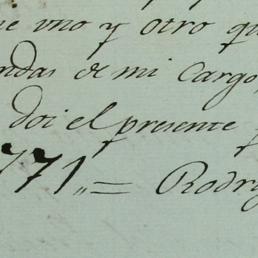 e uno y otro qu
ndas de mi Cargo,
doi el presente
771,, = Rodri